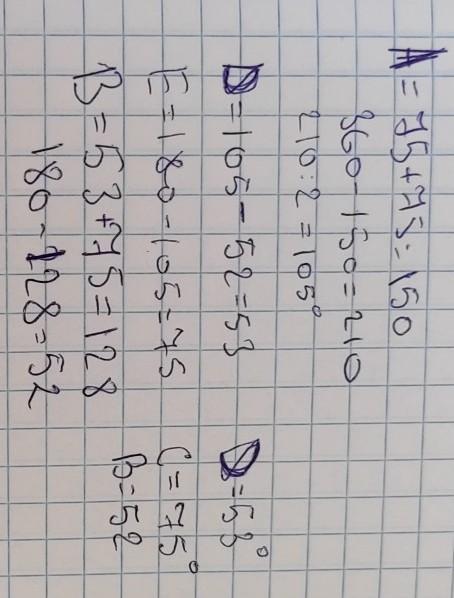 A = 75 + 75 = 150
360 - 150 = 210
210 : 2 = 105°
D = 105 - 52 = 53
E = 180 - 105 = 75
B = 53 + 75 = 128
180 - 128 = 52
D = 53°
C = 75°
B = 52